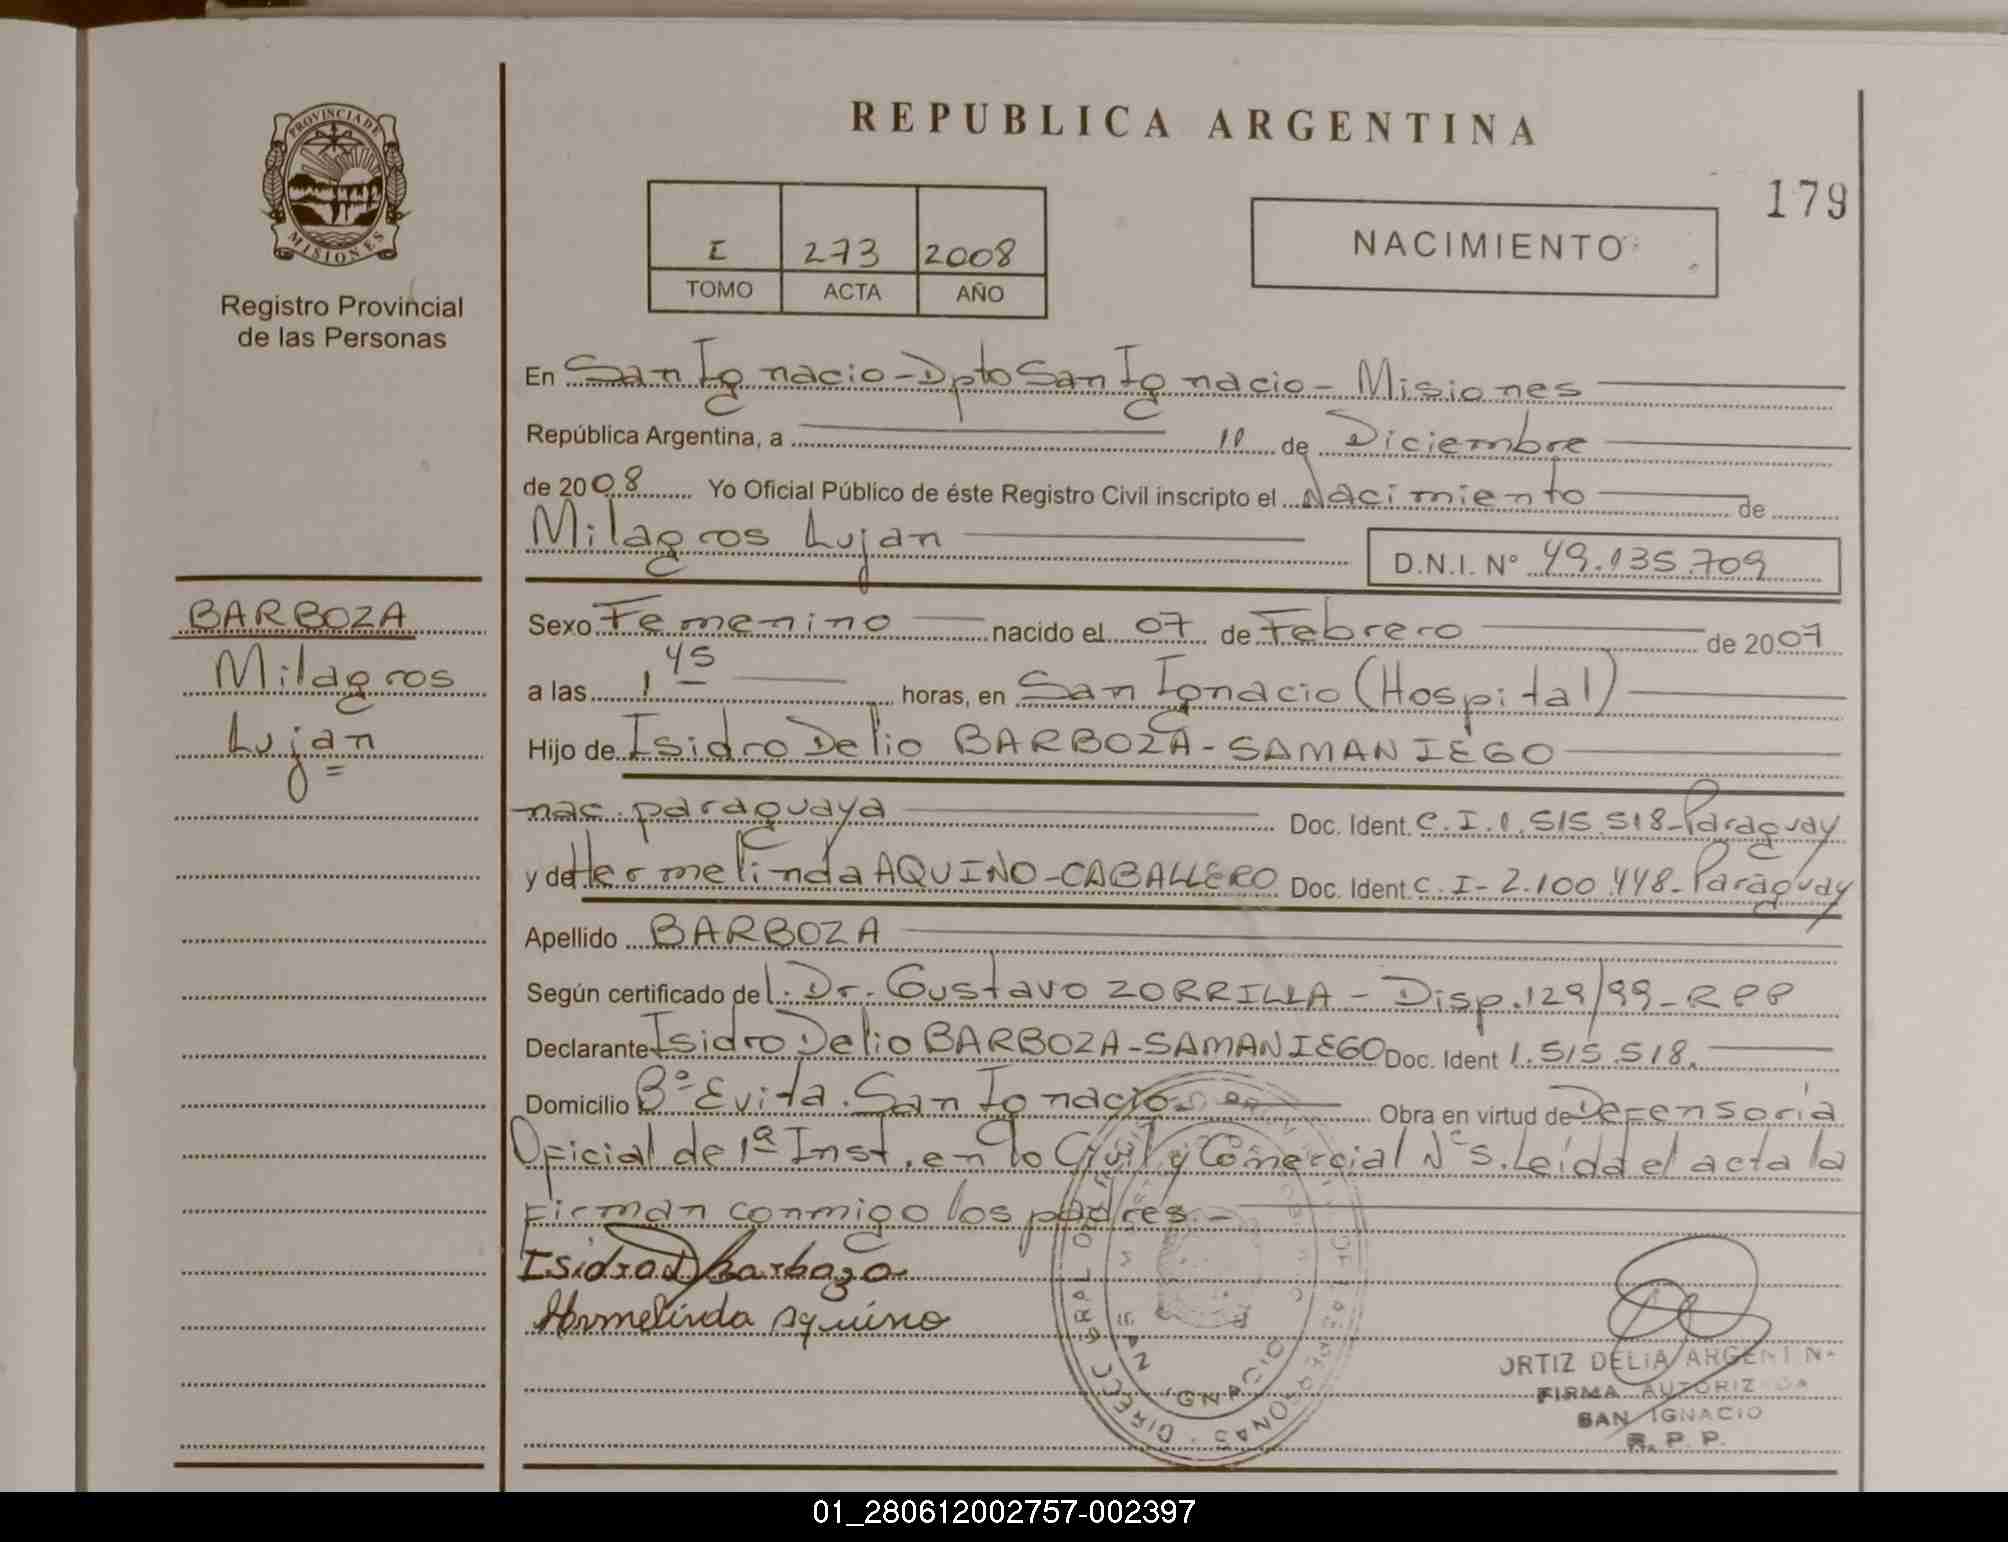 PROVINCIA DE
MISIONES
Registro Provincial
de las Personas
REPUBLICA ARGENTINA
179
I 273 2008
TOMO ACTA AÑO
NACIMIENTO
En San Ignacio - Dpto San Ignacio - Misiones
República Argentina, a 10 de Diciembre
de 2008 Yo Oficial Público de éste Registro Civil inscripto el Nacimiento de
Milagros Lujan D.N.I. N° 49.135.709
BARBOZA
Milagros
Lujan
Sexo Femenino nacido el 07 de Febrero de 2007
a las 1 45 horas, en San Ignacio (Hospital)
Hijo de Isidro Delio BARBOZA - SAMANIEGO
nac. paraguaya Doc. Ident. C. I. 1.515.518 - Paraguay
y de Hermelinda AQUINO - CABALLERO Doc. Ident. C. I - 2.100.448 - Paraguay
Apellido BARBOZA
Según certificado del. Dr. Gustavo ZORRILLA - Disp. 129/99 - RPP
Declarante Isidro Delio BARBOZA - SAMANIEGO Doc. Ident 1.515.518.
Domicilio B° Evita. San Ignacio. Obra en virtud de Defensoría
Oficial de 1ª Inst. en lo Civil y Comercial N° 5. Leída el acta la
firman conmigo los padres. -
Isidro D Barboza
Hermelinda Aquino
SAN IGNACIO
ORTIZ DELIA ARGENTINA
FIRMA AUTORIZADA
SAN IGNACIO
R. P. P.
01_280612002757-002397